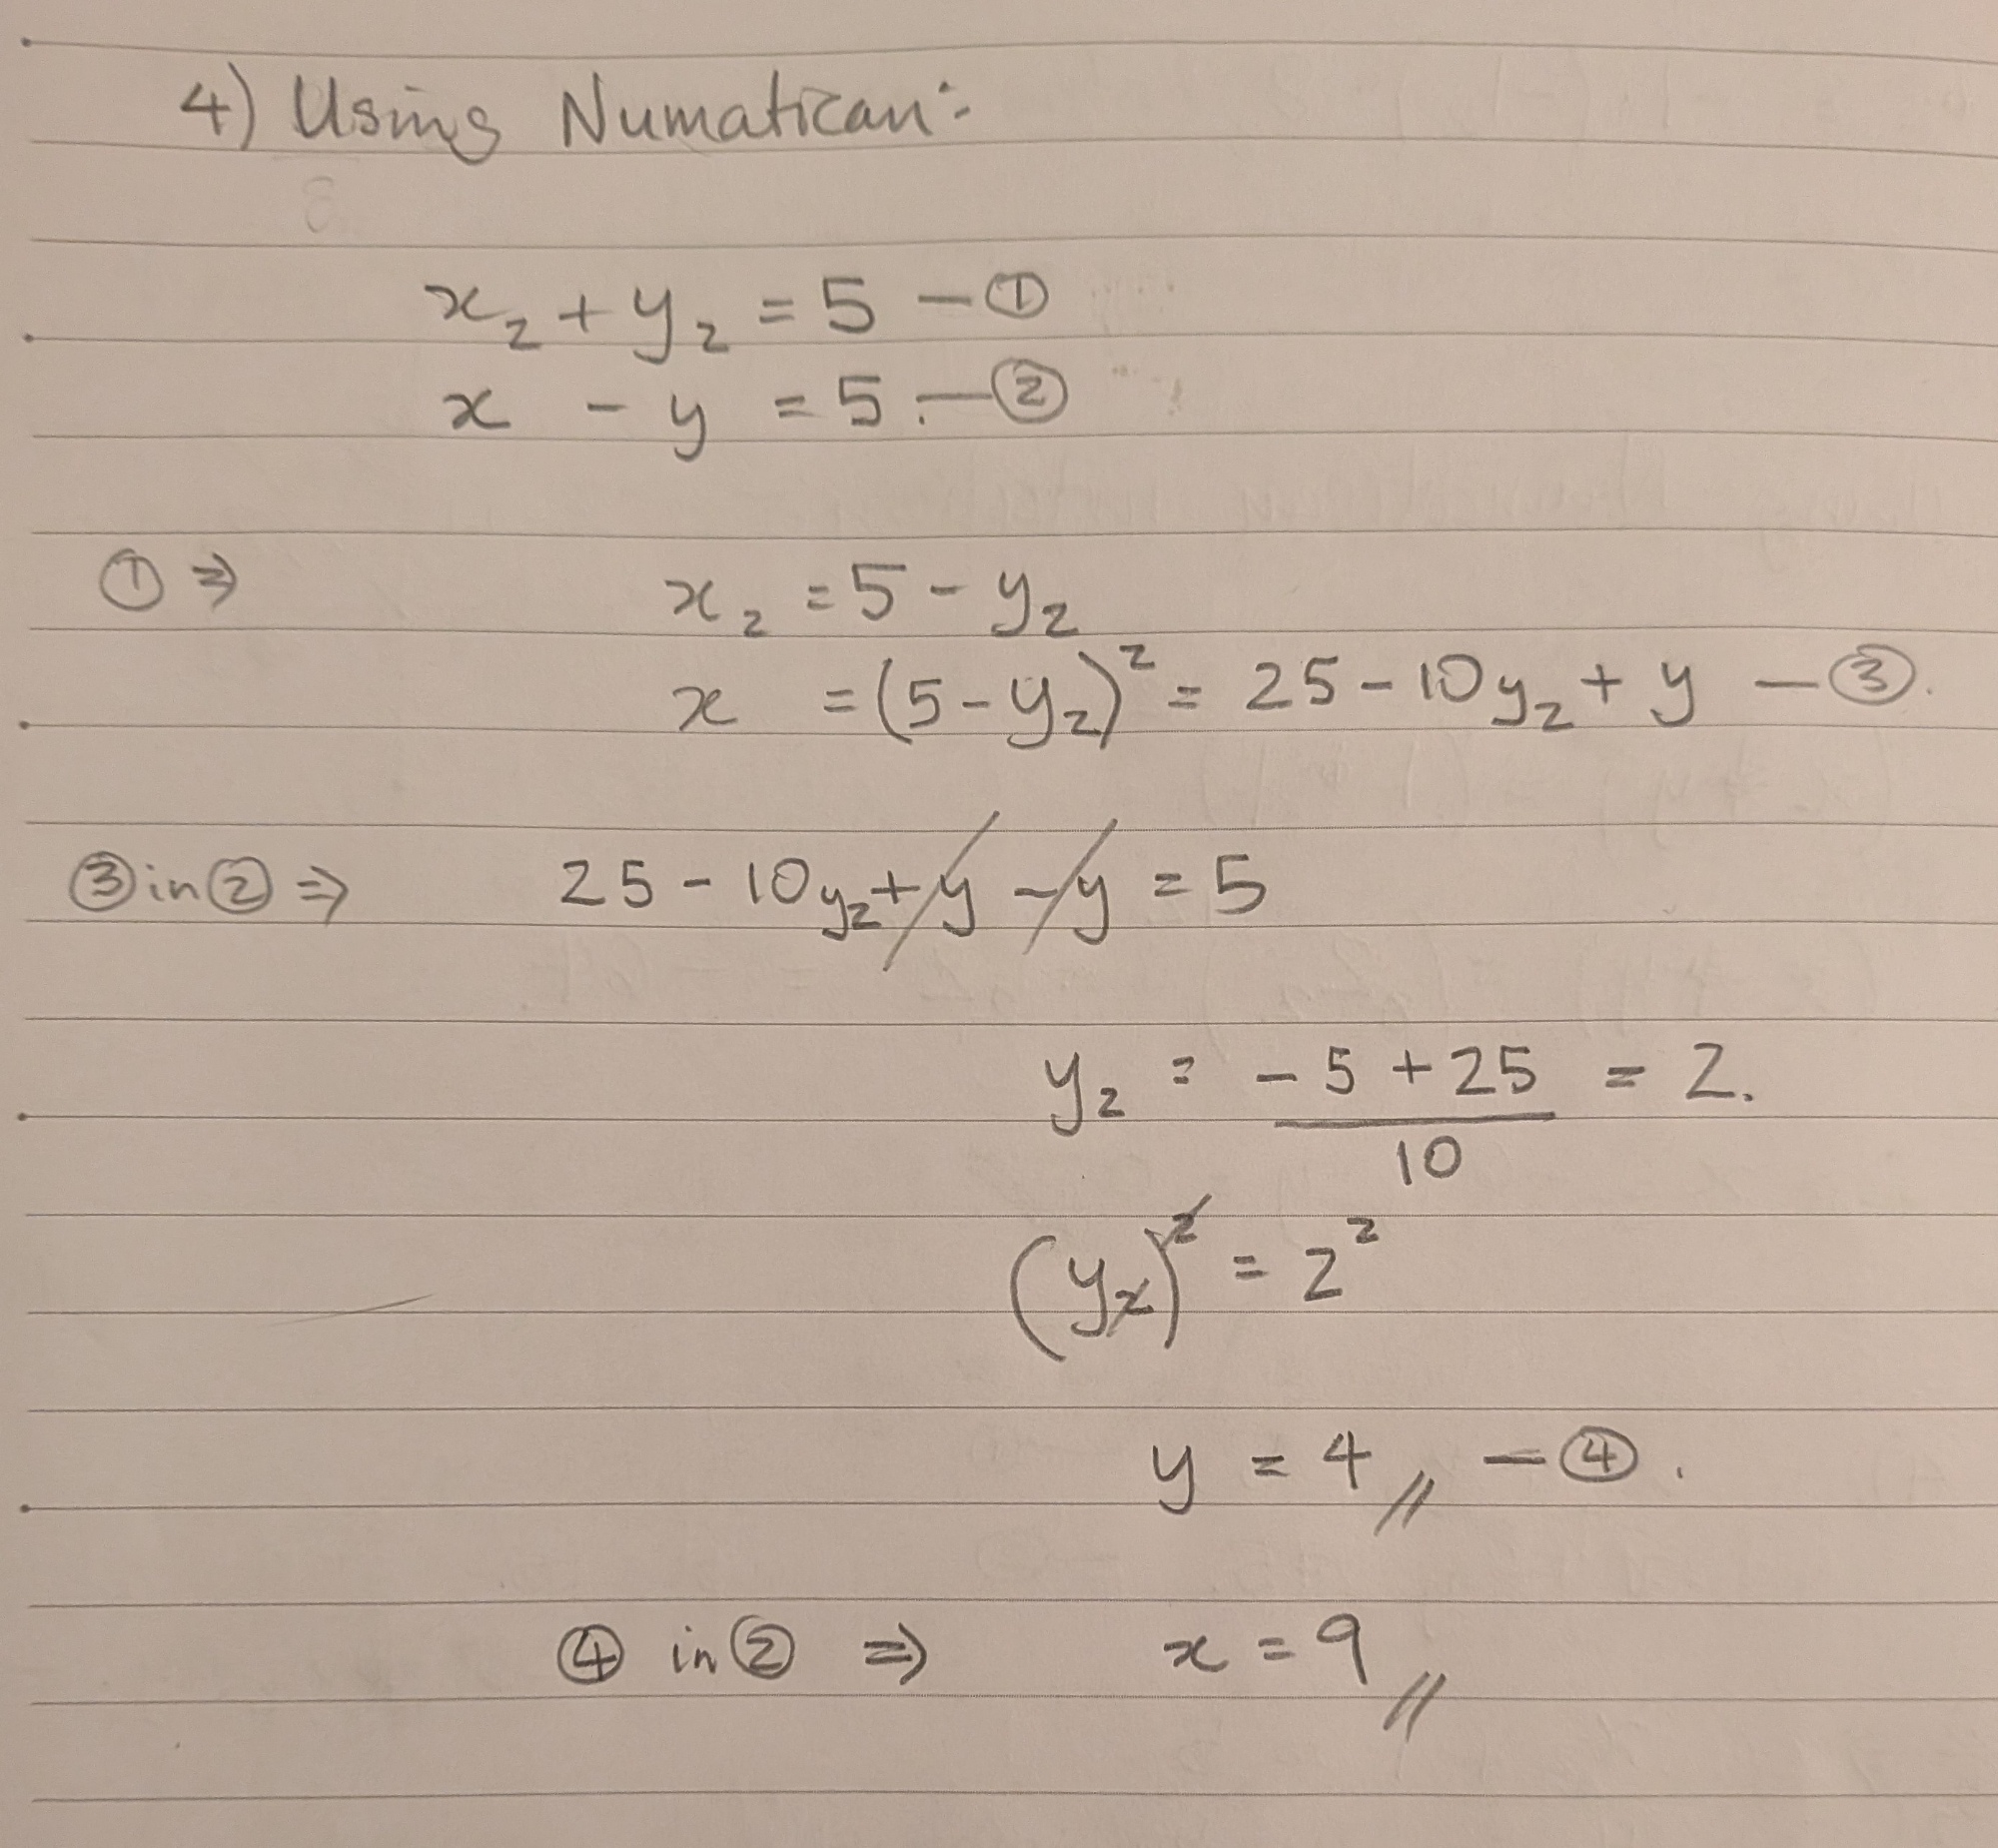 4) Using Numatican:
x₂ + y₂ = 5 — ①
x - y = 5. — ②
① ⇒ x₂ = 5 - y₂
x = (5 - y₂)² = 25 - 10y₂ + y — ③.
③ in ② ⇒ 25 - 10y₂ + y - y = 5
y₂ = (-5 + 25)/10 = 2.
(y₂)² = 2²
y = 4 // — ④.
④ in ② ⇒ x = 9 //